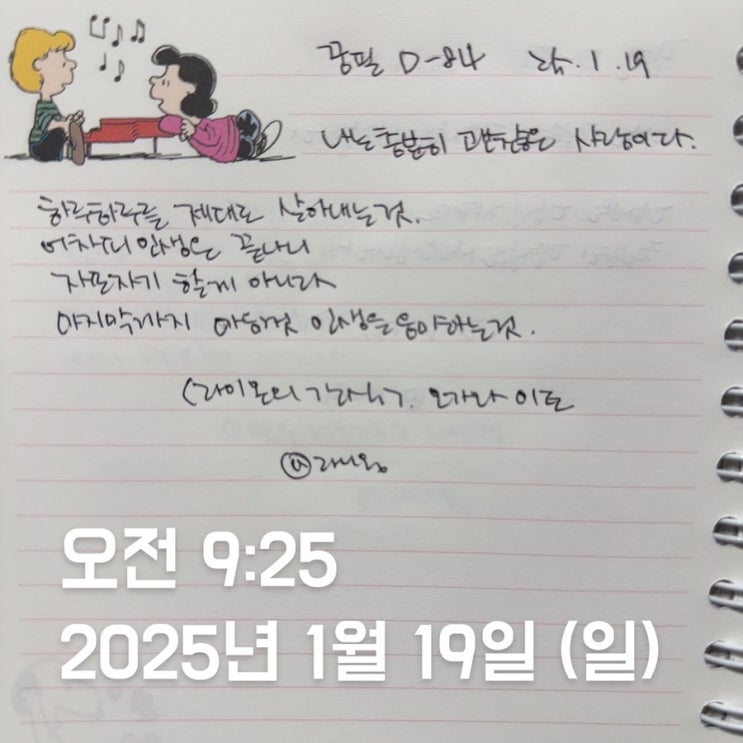 꿈필 D-84 25. 1. 19
나는 충분히 괜찮은 사람이다.
하루하루를 제대로 살아내는 것.
어차피 인생은 끝나니
자포자기 할 게 아니라
마지막까지 마음껏 인생을 음미하는 것.
(라이온의 간식. 오가와 이토
오전 9:25
2025년 1월 19일 (일)